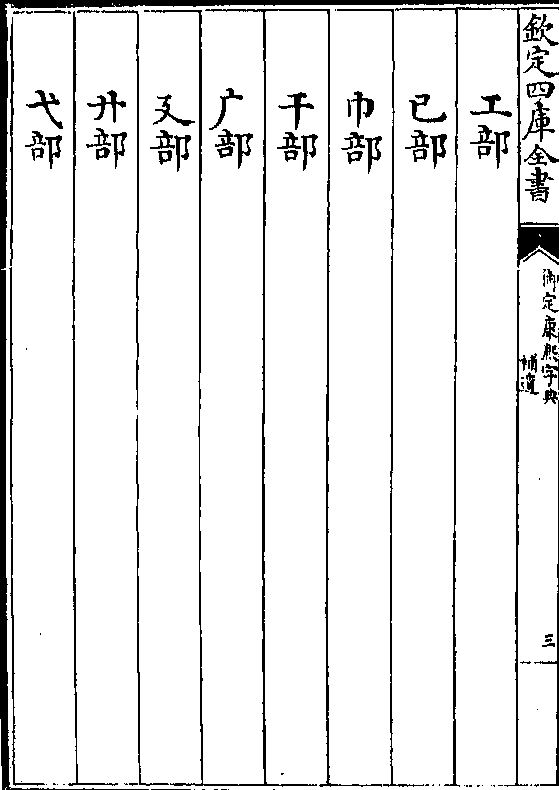 欽定四庫全書
御定康熙字典
補遺
三
工部
已部
巾部
干部
广部
廴部
廾部
弋部